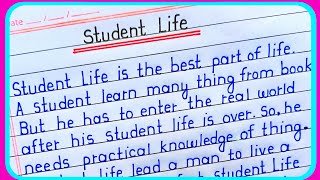 ate / /
Student Life
Student Life is the best part of life.
A student learn many thing from book
But he has to enter the real world
after his student life is over. So, he
needs practical knowledge of thing.
life lead a man to live a
Student Life